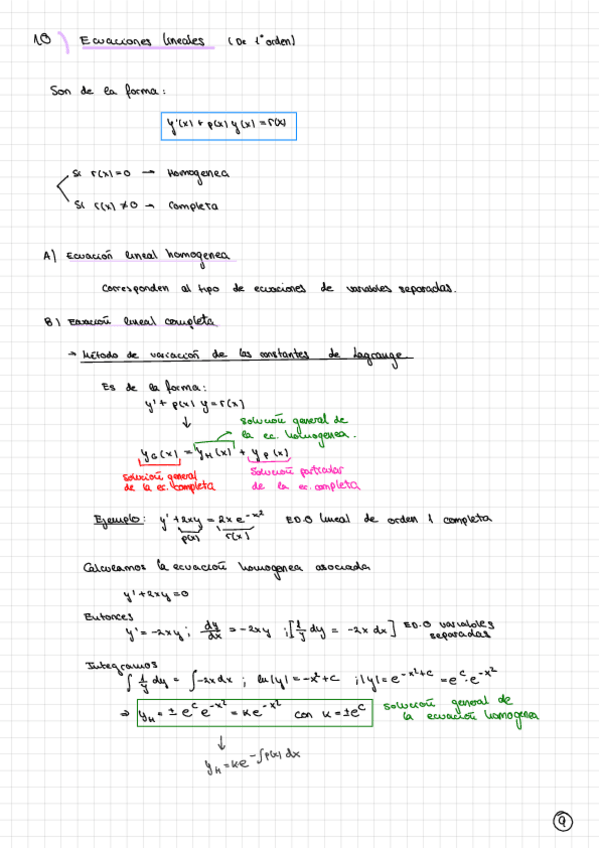 1.8) Ecuaciones lineales (De 1º orden)
Son de la forma:
y'(x) + p(x) y(x) = r(x)
Si r(x) = 0 → Homogenea
Si r(x) ≠ 0 → Completa
A) Ecuación lineal homogenea
Corresponden al tipo de ecuaciones de variables separadas.
B) Ecuación lineal completa
→ Método de variación de las constantes de Lagrange.
Es de la forma:
y' + p(x) y = r(x)
↓
solución general de
la ec. homogenea.
y_G(x) = y_H(x) + y_p(x)
Solución general
de la ec. completa
Solución particular
de la ec. completa
Ejemplo: y' + 2xy = 2x e^{-x²} E.D.O lineal de orden 1 completa
p(x) r(x)
Calculamos la ecuación homogenea asociada
y' + 2xy = 0
Entonces
y' = -2xy ; dy/dx = -2xy ; [1/y dy = -2x dx] E.D.O variables
separadas
Integramos
∫ 1/y dy = ∫ -2x dx ; ln|y| = -x² + C ; |y| = e^{-x²+C} = e^C · e^{-x²}
⇒ y_H = ± e^C e^{-x²} = K e^{-x²} con K = ± e^C
solución general de
la ecuación homogenea
↓
y_H = K e^{-∫p(x) dx}
9